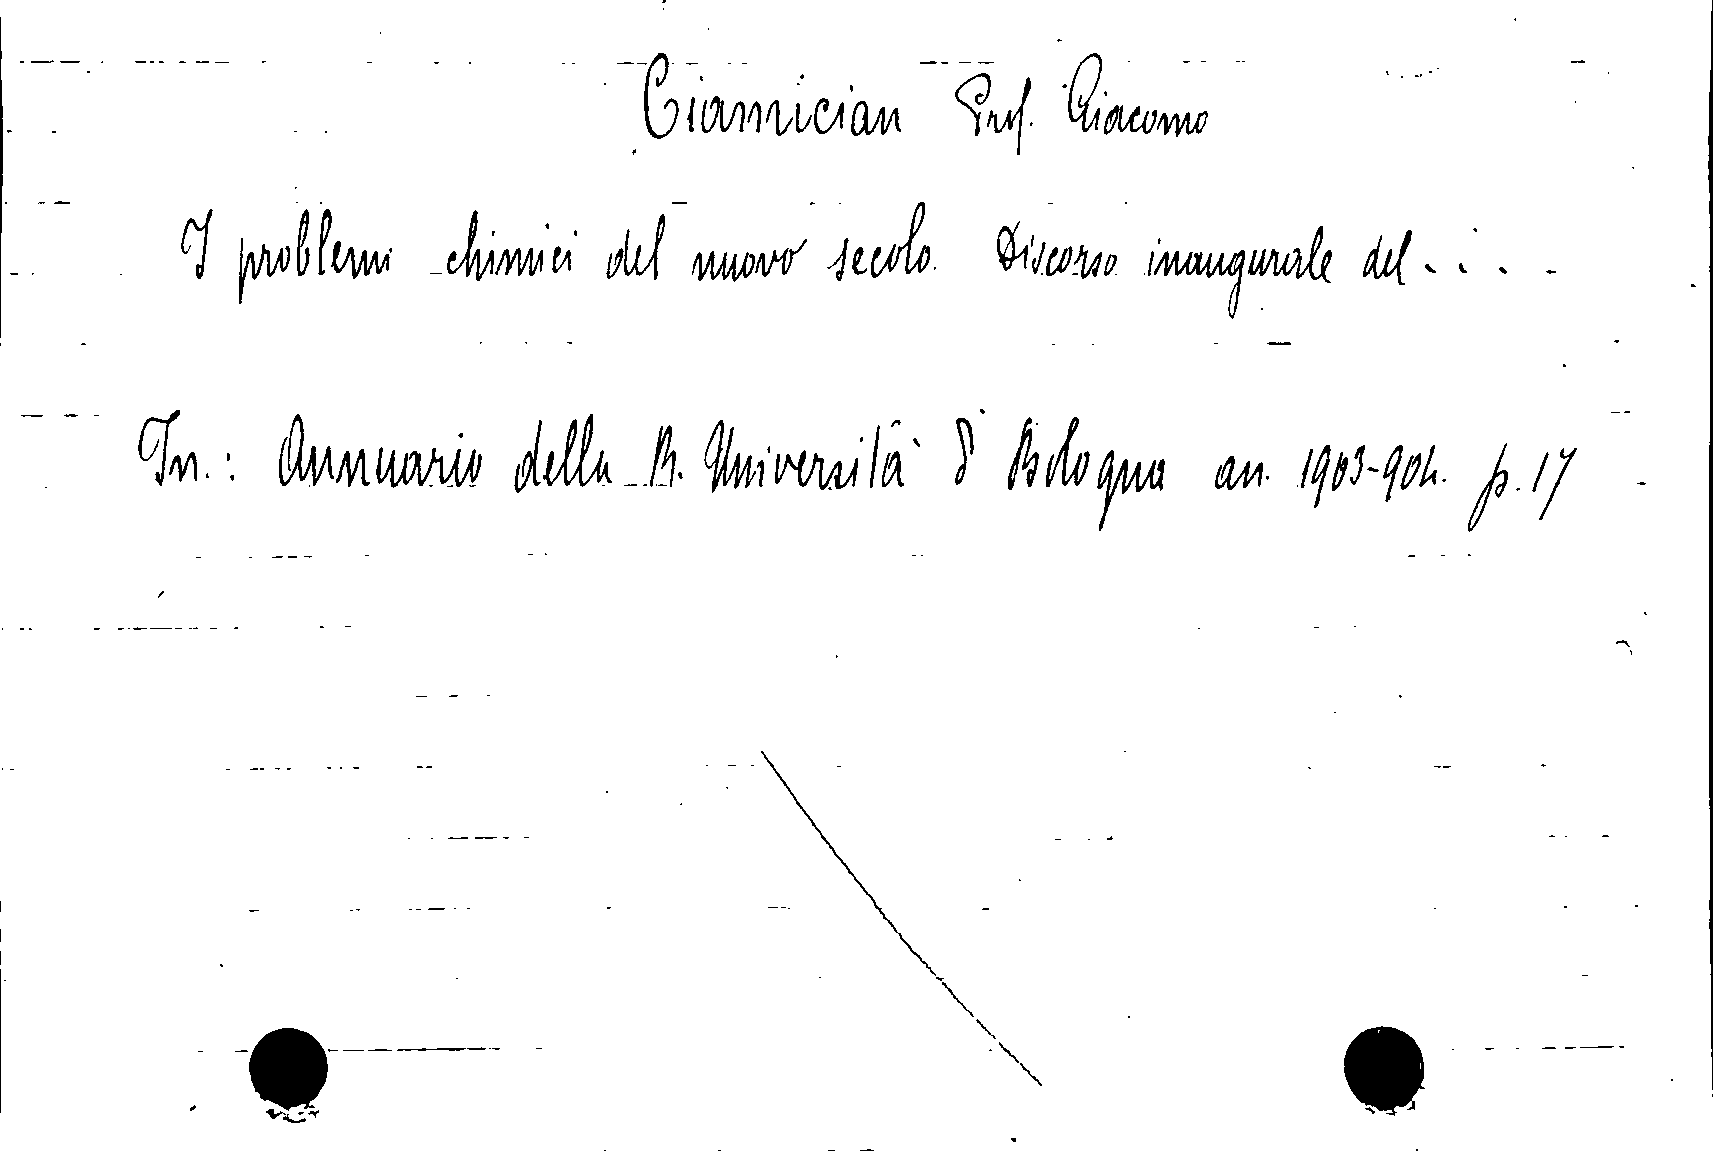 Ciamician Prof. Giacomo
I problemi chimici del nuovo secolo. Discorso inaugurale del....
In.: Annuario della R. Università di Bologna an. 1903-904. p. 17